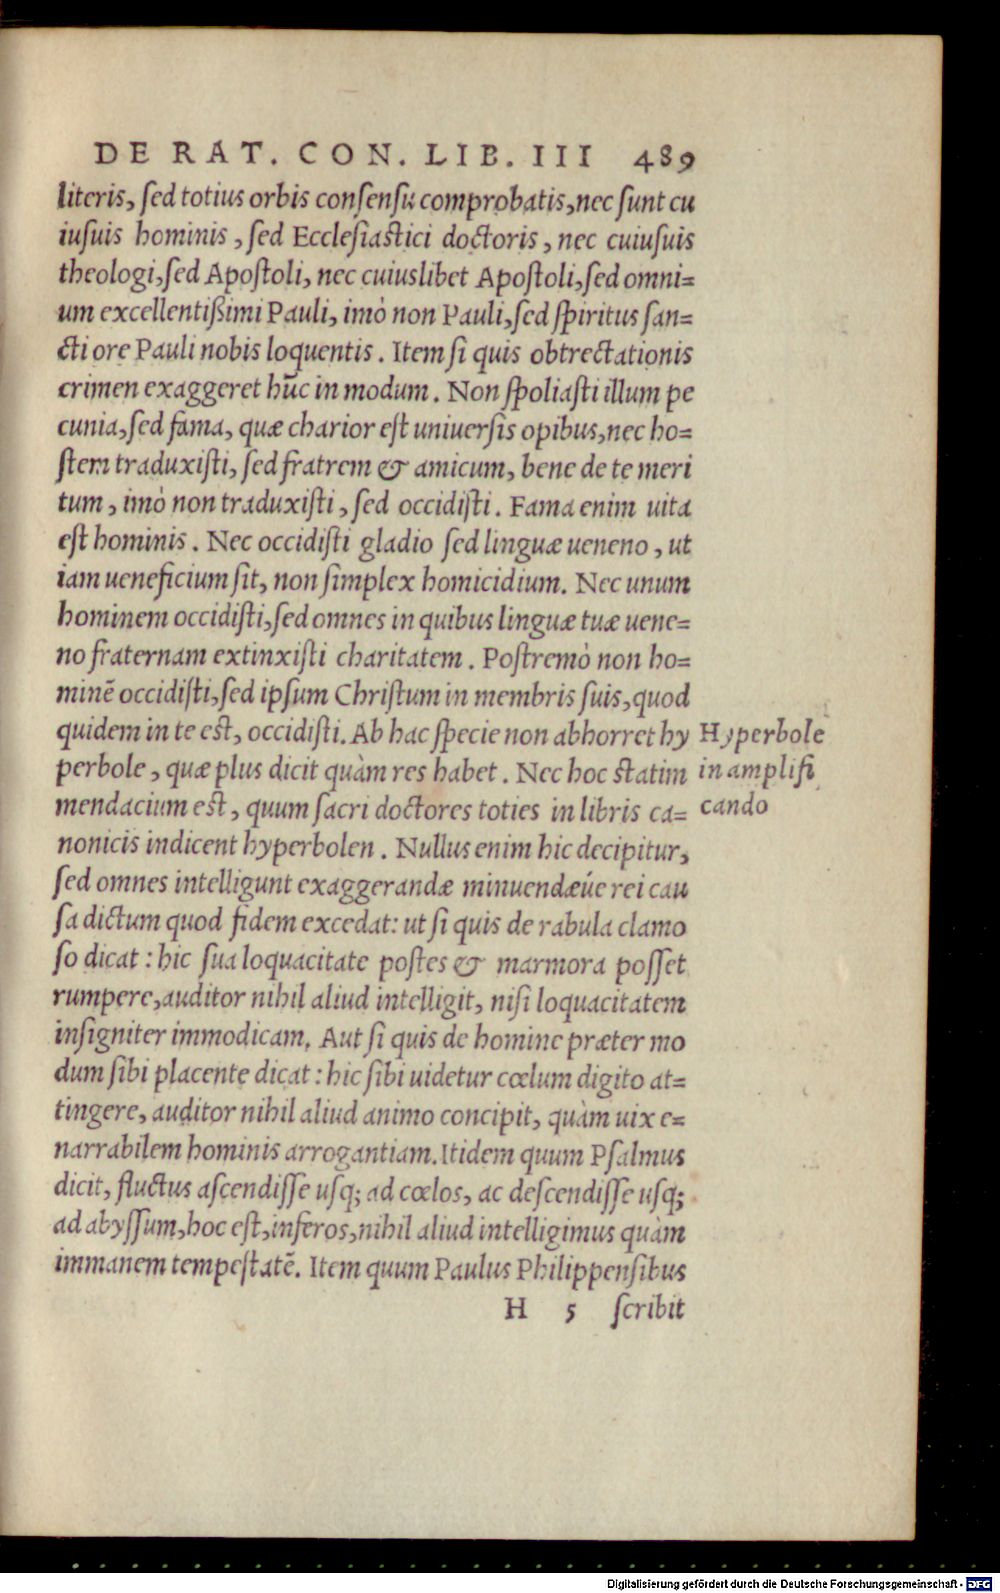 DE RAT. CON. LIB. III 489
literis, sed totius orbis consensu comprobatis, nec sunt cu
iusuis hominis, sed Ecclesiastici doctoris, nec cuiusuis
theologi, sed Apostoli, nec cuiuslibet Apostoli, sed omni=
um excellentißimi Pauli, imò non Pauli, sed spiritus san=
cti ore Pauli nobis loquentis. Item si quis obtrectationis
crimen exaggeret hūc in modum. Non spoliasti illum pe
cunia, sed fama, quæ charior est uniuersis opibus, nec ho=
stem traduxisti, sed fratrem & amicum, bene de te meri
tum, imò non traduxisti, sed occidisti. Fama enim uita
est hominis. Nec occidisti gladio sed linguæ ueneno, ut
iam ueneficium sit, non simplex homicidium. Nec unum
hominem occidisti, sed omnes in quibus linguæ tuæ uene=
no fraternam extinxisti charitatem. Postremò non ho=
minē occidisti, sed ipsum Christum in membris suis, quod
quidem in te est, occidisti. Ab hac specie non abhorret hy
perbole, quæ plus dicit quàm res habet. Nec hoc statim
mendacium est, quum sacri doctores toties in libris ca=
nonicis indicent hyperbolen. Nullus enim hic decipitur,
sed omnes intelligunt exaggerandæ minuendæúe rei cau
sa dictum quod fidem excedat: ut si quis de rabula clamo
so dicat: hic sua loquacitate postes & marmora posset
rumpere, auditor nihil aliud intelligit, nisi loquacitatem
insigniter immodicam. Aut si quis de homine præter mo
dum sibi placente dicat: hic sibi uidetur cœlum digito at=
tingere, auditor nihil aliud animo concipit, quàm uix e=
narrabilem hominis arrogantiam. Itidem quum Psalmus
dicit, fluctus ascendisse usq; ad cœlos, ac descendisse usq;
ad abyssum, hoc est, inferos, nihil aliud intelligimus quàm
immanem tempestatē. Item quum Paulus Philippensibus
H 5 scribit
Hyperbole
in amplifi
cando
Digitalisierung gefördert durch die Deutsche Forschungsgemeinschaft - DFG